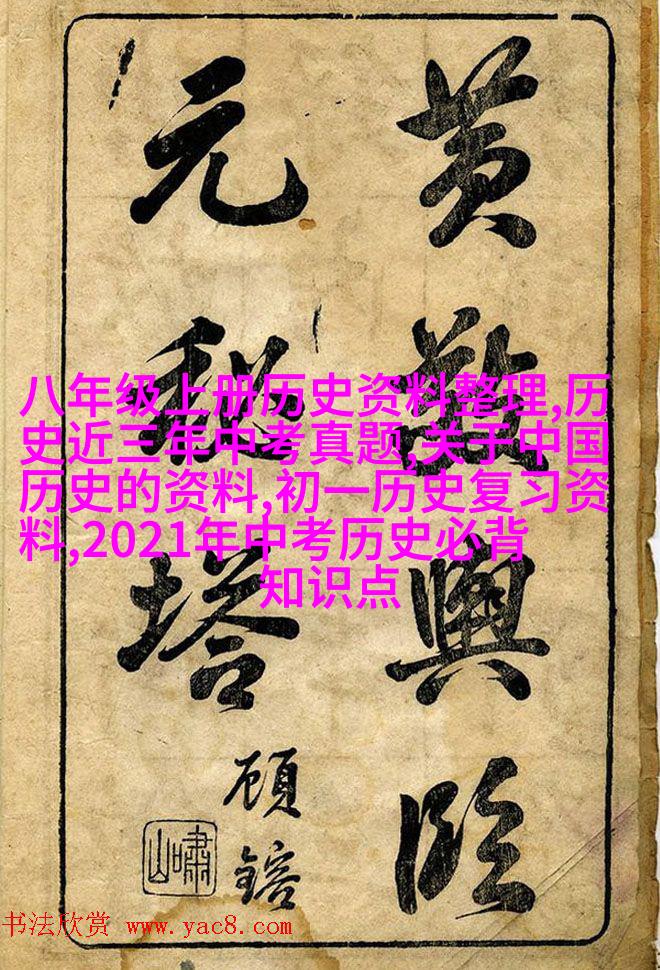 黄敬輿臨
元秘塔
顧鎔
嘯山
八年级上册历史资料整理,历
史近三年中考真题,关于中国
历史的资料,初一历史复习资
料,2021年中考历史必背
知识点
书法欣赏 www.yac8.com